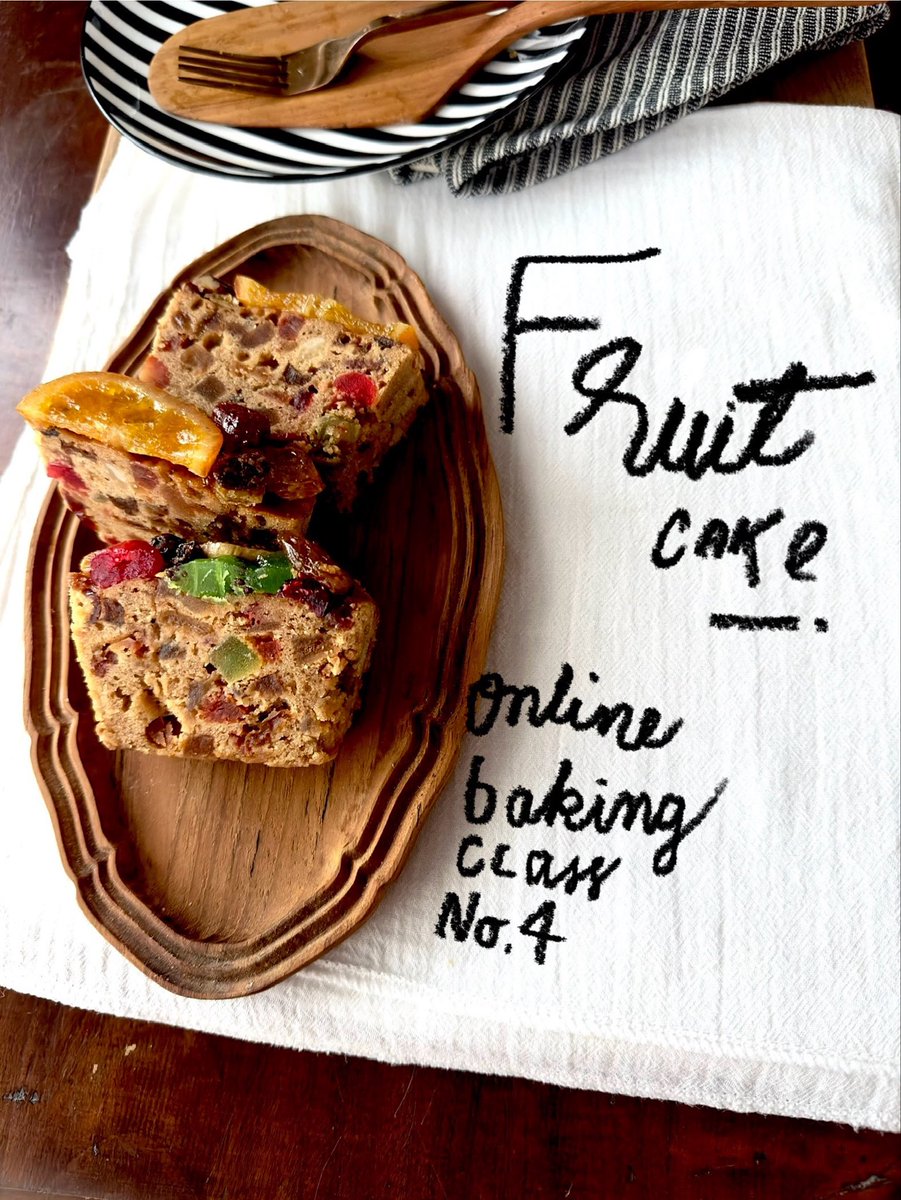 Fruit
cake
online
baking
class
No.4